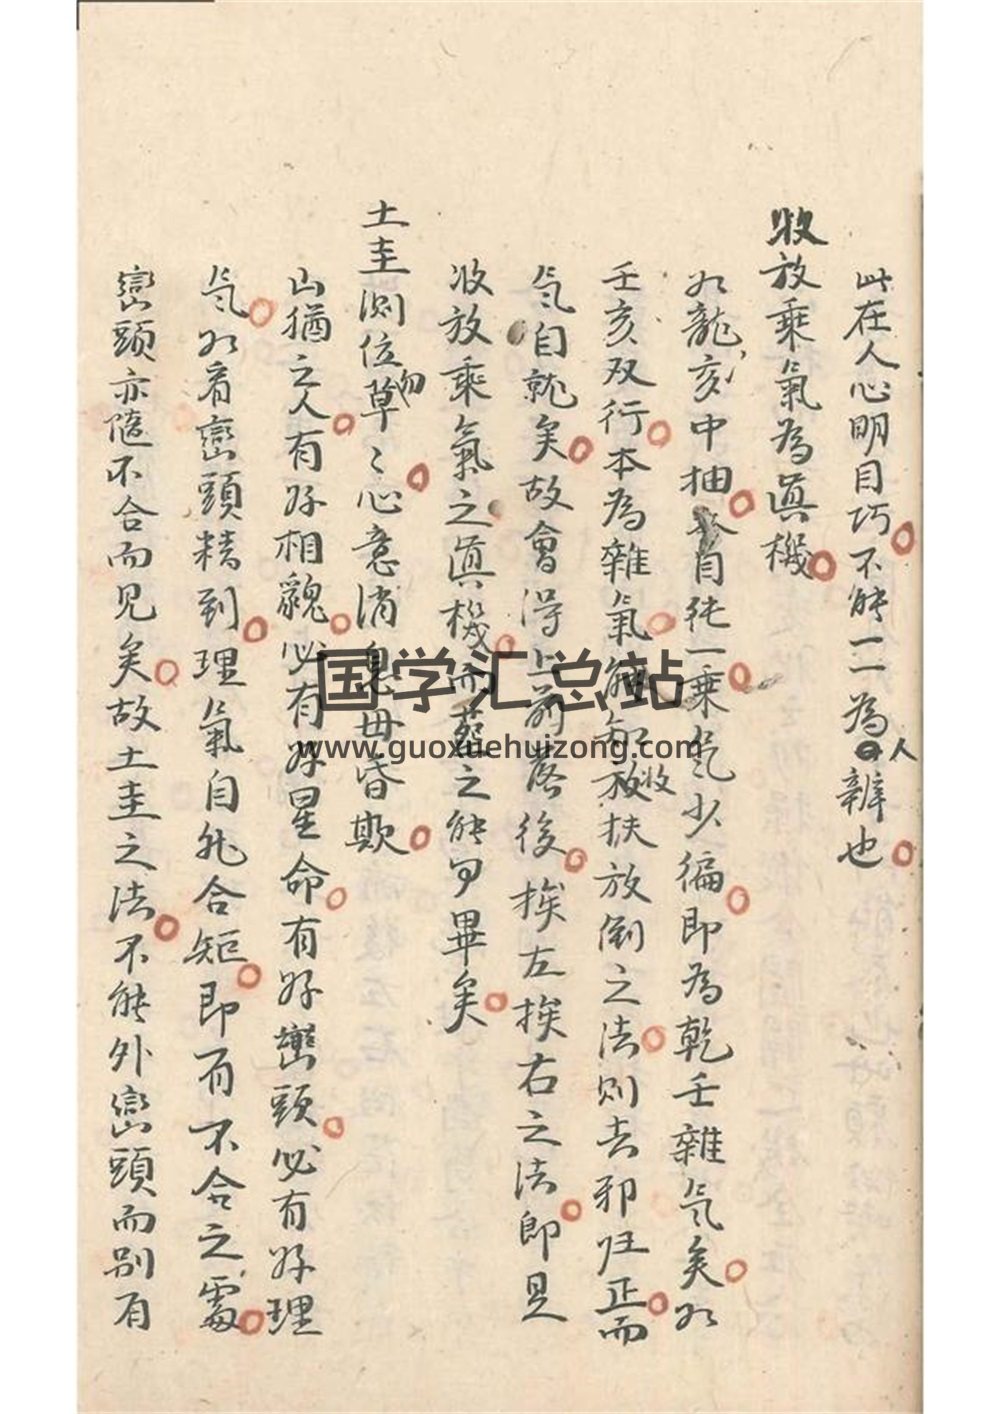 此在人心明目巧不能一一為人辨也
收放乘氣為眞機
如龍亥中抽 自純一乘气少偏即為乾壬雜气矣如
壬亥双行本為雜氣能知放收扶放倒之法則去邪归正而
气自就矣故會得上前落後挨左挨右之法即是
收放乘氣之眞機而葬之能事畢矣
土圭測位勿草〻心意消息毋昏欺
山猶之人有好相貌必有好星命有好巒頭必有好理
气如看巒頭精到理氣自然合矩即有不合之處
巒頭亦隨不合而見矣故土圭之法不能外巒頭而别有
国学汇总站
www.guoxuehuizong.com